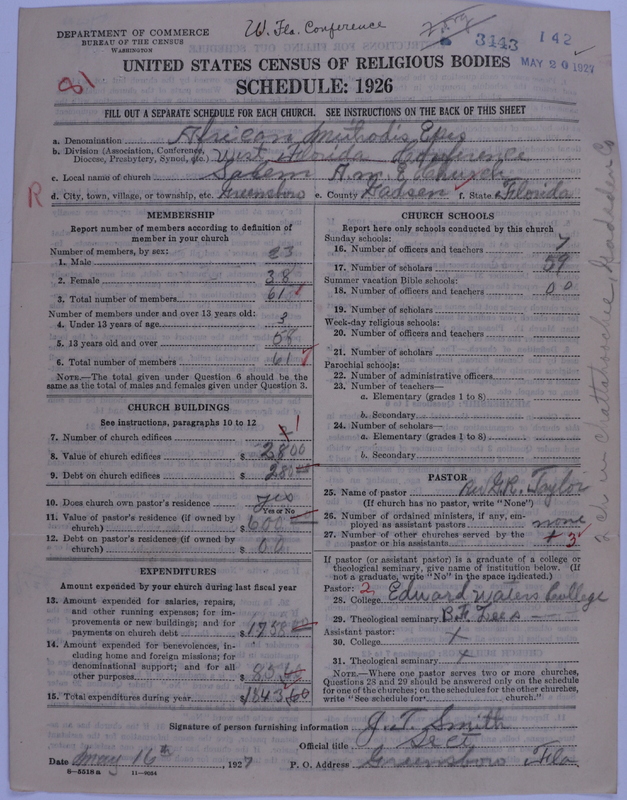 DEPARTMENT OF COMMERCE
BUREAU OF THE CENSUS
WASHINGTON
W. Fla. Conference
3143 142
MAY 20 1927
81
UNITED STATES CENSUS OF RELIGIOUS BODIES
SCHEDULE: 1926
FILL OUT A SEPARATE SCHEDULE FOR EACH CHURCH. SEE INSTRUCTIONS ON THE BACK OF THIS SHEET
a. Denomination African Methodis Epis
b. Division (Association, Conference, Diocese, Presbytery, Synod, etc.) West Florida Conference
c. Local name of church Salem A.M.E. Church
R
d. City, town, village, or township, etc. Greensboro e. County Gadsen f. State Florida
MEMBERSHIP
Report number of members according to definition of member in your church
Number of members, by sex:
1. Male 23
2. Female 38
3. Total number of members 61
Number of members under and over 13 years old:
4. Under 13 years of age 3
5. 13 years old and over 58
6. Total number of members 61
NOTE.—The total given under Question 6 should be the same as the total of males and females given under Question 3.
CHURCH BUILDINGS
See instructions, paragraphs 10 to 12
7. Number of church edifices 1
8. Value of church edifices $ 2800
9. Debt on church edifices $ 280
10. Does church own pastor's residence yes
Yes or No
11. Value of pastor's residence (if owned by church) $ 600
12. Debt on pastor's residence (if owned by church) $ 00
EXPENDITURES
Amount expended by your church during last fiscal year
13. Amount expended for salaries, repairs, and other running expenses; for improvements or new buildings; and for payments on church debt $ 1758
14. Amount expended for benevolences, including home and foreign missions; for denominational support; and for all other purposes $ 85
15. Total expenditures during year $ 1843
CHURCH SCHOOLS
Report here only schools conducted by this church
Sunday schools:
16. Number of officers and teachers 7
17. Number of scholars 59
Summer vacation Bible schools:
18. Number of officers and teachers 00
19. Number of scholars
Week-day religious schools:
20. Number of officers and teachers
21. Number of scholars
Parochial schools:
22. Number of administrative officers
23. Number of teachers—
a. Elementary (grades 1 to 8)
b. Secondary
24. Number of scholars—
a. Elementary (grades 1 to 8)
b. Secondary
PASTOR
25. Name of pastor Rev G.R. Taylor
(If church has no pastor, write "None")
26. Number of ordained ministers, if any, employed as assistant pastors none
27. Number of other churches served by the pastor or his assistants 3
If pastor (or assistant pastor) is a graduate of a college or theological seminary, give name of institution below. (If not a graduate, write "No" in the space indicated.)
Pastor: 2
28. College Edward Waters College
29. Theological seminary B.F. Lees
Assistant pastor:
30. College x
31. Theological seminary x
NOTE.—Where one pastor serves two or more churches, Questions 28 and 29 should be answered only on the schedule for one of the churches; on the schedules for the other churches, write "See schedule for church."
Signature of person furnishing information J. T. Smith
Official title Sect
Date May 16th, 1927 P. O. Address Greensboro Fla
8-5518 a 11-9064